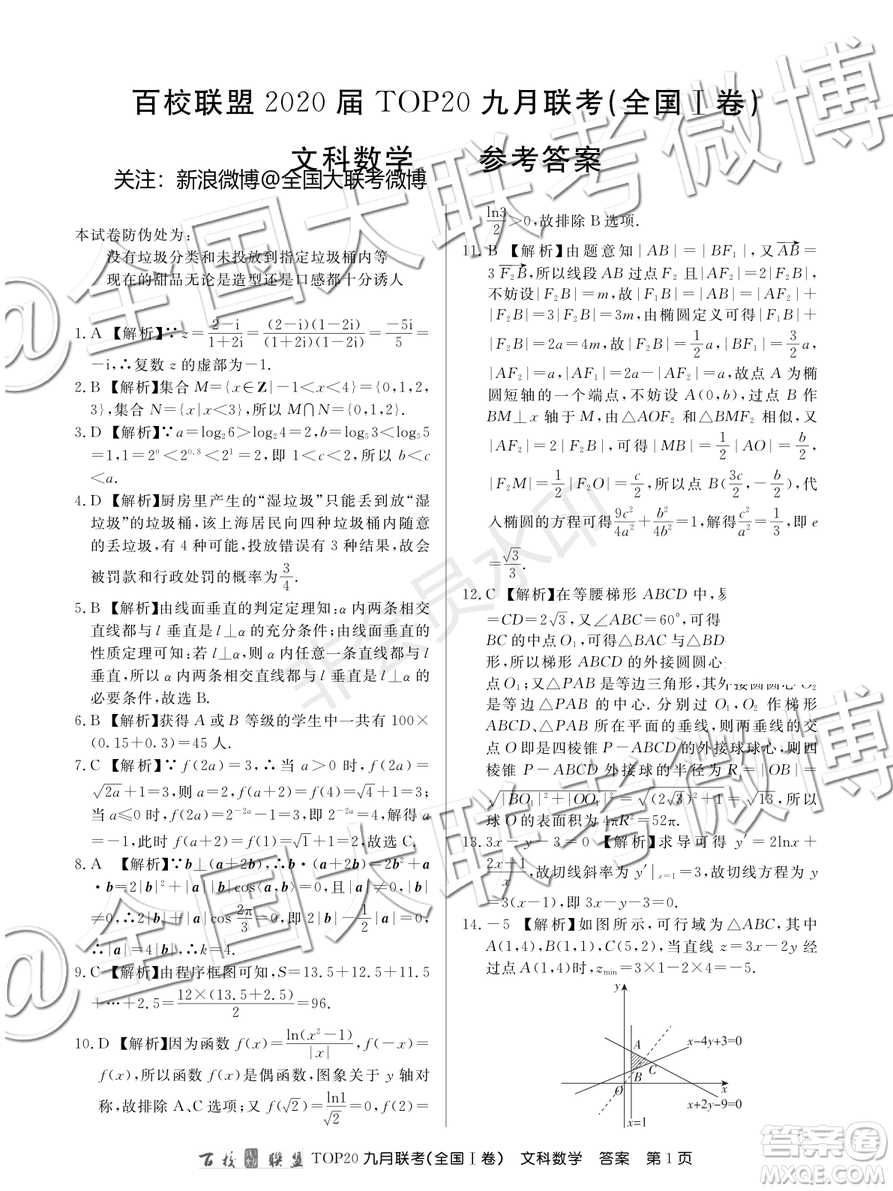 百校联盟 2020 届 TOP20 九月联考(全国Ⅰ卷)
文科数学 参考答案
关注：新浪微博@全国大联考微博
本试卷防伪处为：
没有垃圾分类和未投放到指定垃圾桶内等
现在的甜品无论是造型还是口感都十分诱人
1. A 【解析】∵z=\frac{2-i}{1+2i}=\frac{(2-i)(1-2i)}{(1+2i)(1-2i)}=\frac{-5i}{5}=
-i,∴复数 z 的虚部为-1.
2. B 【解析】集合 M={x∈Z|-1<x<4}={0,1,2,
3},集合 N={x|x<3},所以 M∩N={0,1,2}.
3. D 【解析】∵a=log₂6>log₂4=2,b=log₅3<log₅5
=1,1=2⁰<2^{0.8}<2¹=2,即 1<c<2,所以 b<c
<a.
4. D 【解析】厨房里产生的“湿垃圾”只能丢到放“湿
垃圾”的垃圾桶,该上海居民向四种垃圾桶内随意
的丢垃圾,有 4 种可能,投放错误有 3 种可能,故会
被罚款和行政处罚的概率为\frac{3}{4}.
5. B 【解析】由线面垂直的判定定理知:α 内两条相交
直线都与 l 垂直是 l⊥α 的充分条件;由线面垂直的
性质定理可知:若 l⊥α,则 α 内任意一条直线都与 l
垂直,所以 α 内两条直线都与 l 垂直是 l⊥α 的
必要条件,故选 B.
6. B 【解析】获得 A 或 B 等级的学生中一共有 100×
(0.15+0.3)=45 人.
7. C 【解析】∵f(2a)=3,∴当 a>0 时,f(2a)=
\sqrt{2a}+1=3,则 a=2,f(a+2)=f(4)=\sqrt{4}+1=3;
当 a≤0 时,f(2a)=2^{-2a}-1=3,即 2^{-2a}=4,解得 a
=-1,此时 f(a+2)=f(1)=\sqrt{1}+1=2,故选 C.
8. A 【解析】∵b⊥(a+2b),∴b·(a+2b)=2b²+a
·b=2|b|²+|a||b|cos⟨a,b⟩=0,又∵|a|≠0,|b|
≠0,∴2|b|+|a|cos\frac{2π}{3}=0,即 2|b|=\frac{1}{2}|a|,
∴|a|=4|b|,∴k=4.
9. C 【解析】由程序框图可知,S=13.5+12.5+11.5
+…+2.5=\frac{12×(13.5+2.5)}{2}=96.
10. D 【解析】因为函数 f(x)=\frac{ln(x²-1)}{|x|},f(-x)=
f(x),所以函数 f(x)是偶函数,图象关于 y 轴对
称,故排除 A、C 选项;又 f(\sqrt{2})=\frac{ln1}{\sqrt{2}}=0,f(2)=
\frac{ln3}{2}>0,故排除 B 选项.
11. B 【解析】由题意知|AB|=|BF₁|,又\overrightarrow{AB}=
3\overrightarrow{F₂B},所以线段 AB 过点 F₂ 且|AF₂|=2|F₂B|,
不妨设|F₂B|=m,故|F₁B|=|AB|=|AF₂|+
|F₂B|=3|F₂B|=3m,由椭圆定义可得|F₁B|+
|F₂B|=2a=4m,故|F₂B|=\frac{1}{2}a,|BF₁|=\frac{3}{2}a,
|AF₂|=a,|AF₁|=2a-|AF₂|=a,故点 A 为椭
圆短轴的一个端点,不妨设 A(0,b),过点 B 作
BM⊥x 轴于 M,由△AOF₂ 和△BMF₂ 相似,又
|AF₂|=2|F₂B|,可得|MB|=\frac{1}{2}|AO|=\frac{b}{2},
|F₂M|=\frac{1}{2}|F₂O|=\frac{c}{2},所以点 B(\frac{3c}{2},-\frac{b}{2}),代
入椭圆的方程可得\frac{9c²}{4a²}+\frac{b²}{4b²}=1,解得\frac{c²}{a²}=\frac{1}{3},即 e
=\frac{\sqrt{3}}{3}.
12. C 【解析】在等腰梯形 ABCD 中,
=CD=2\sqrt{3},又∠ABC=60°,可得
BC 的中点 O₁,可得△BAC 与△BD
形,所以梯形 ABCD 的外接圆圆心
点 O₁;又△PAB 是等边三角形,其外接圆圆心 O₂
是等边△PAB 的中心. 分别过 O₁,O₂ 作梯形
ABCD、△PAB 所在平面的垂线,则两垂线的交
点 O 即是四棱锥 P-ABCD 的外接球球心,则四
棱锥 P-ABCD 外接球的半径为 R=|OB|=
\sqrt{|BO₁|²+|OO₁|²}=\sqrt{(2\sqrt{3})²+1}=\sqrt{13},所以
球 O 的表面积为 4πR²=52π.
13. 3x-y-3=0 【解析】求导可得 y′=2lnx+
\frac{2x+1}{x},故切线斜率为 y′|_{x=1}=3,故切线方程为 y
=3(x-1),即 3x-y-3=0.
14. -5 【解析】如图所示,可行域为△ABC,其中
A(1,4),B(1,1),C(5,2),当直线 z=3x-2y 经
过点 A(1,4)时,z_{min}=3×1-2×4=-5.
y
x-4y+3=0
A
C
B
O
x
x+2y-9=0
x=1
百校联盟 TOP20 九月联考(全国Ⅰ卷) 文科数学 答案 第 1 页
@全国大联考微博
@全国大联考微博
非会员水印
答案圈